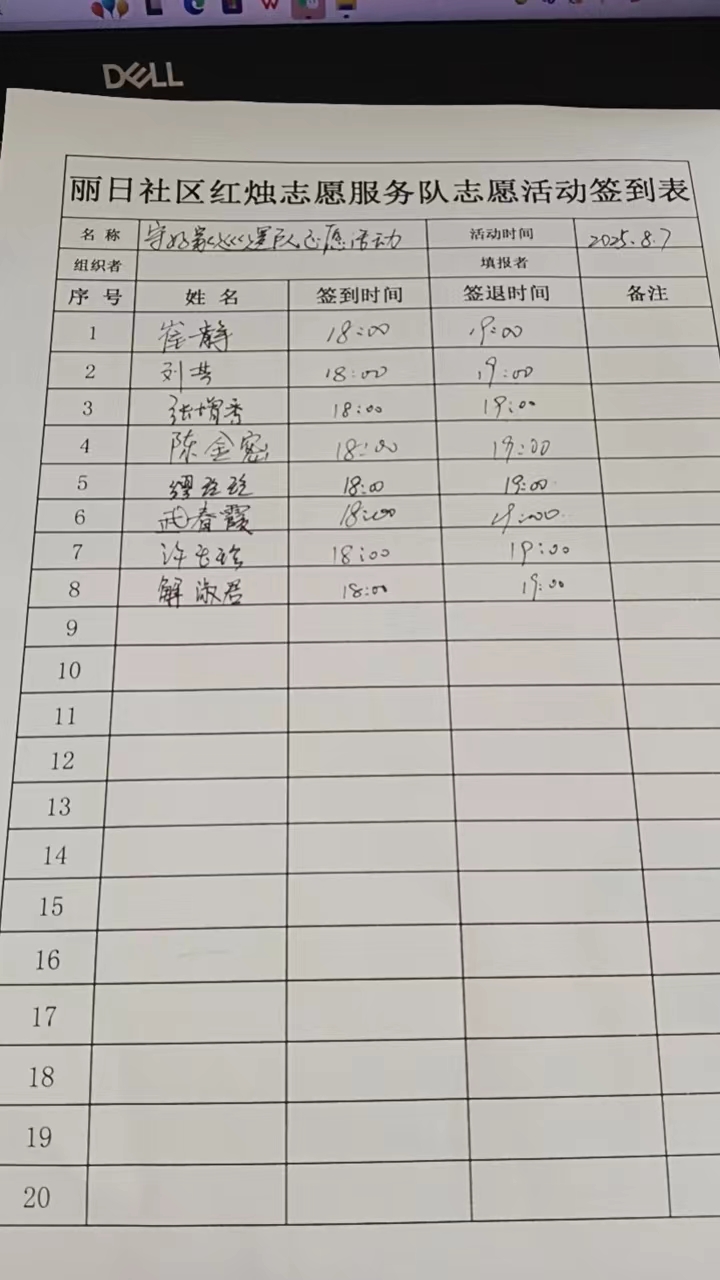 DELL
丽日社区红烛志愿服务队志愿活动签到表
名称 守好家 巡逻队志愿活动 活动时间 2025.8.7
组织者 填报者
序号 姓名 签到时间 签退时间 备注
1 崔静 18:00 19:00
2 刘芸 18:00 19:00
3 张增秀 18:00 19:00
4 陈金密 18:00 19:00
5 缪 18:00 19:00
6 武春霞 18:00 19:00
7 许 18:00 19:00
8 解淑君 18:00 19:00
9
10
11
12
13
14
15
16
17
18
19
20